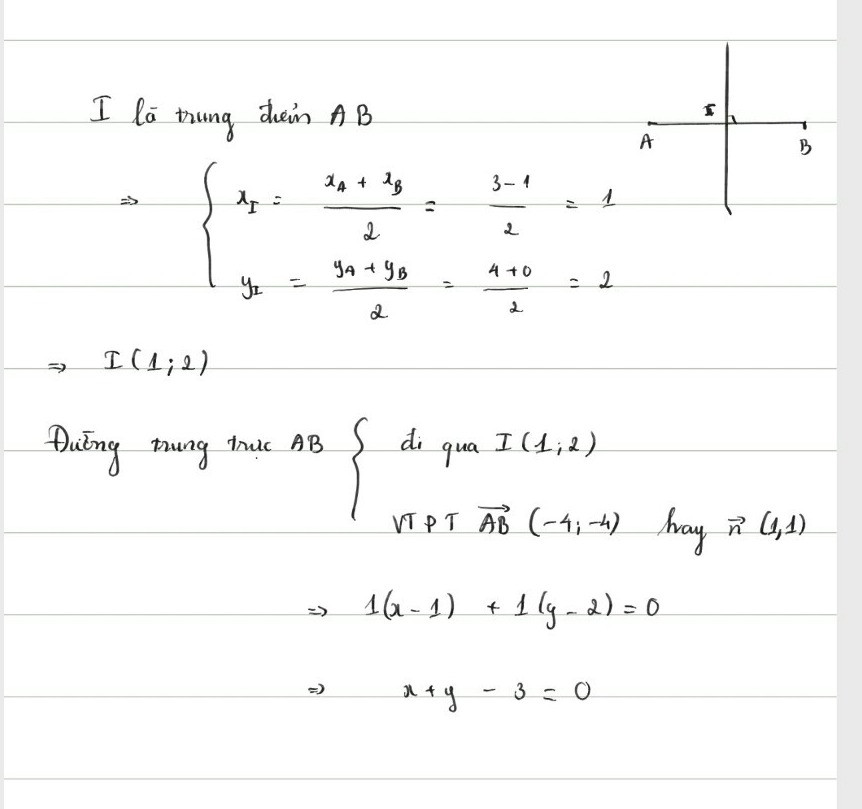 I là trung điểm AB
I
A
B
=> { x_I = (x_A + x_B)/2 = (3-1)/2 = 1
y_I = (y_A + y_B)/2 = (4+0)/2 = 2
=> I(1;2)
Đường trung trực AB { đi qua I(1;2)
VTPT \overrightarrow{AB} (-4;-4) hay \vec{n} (1,1)
=> 1(x-1) + 1(y-2) = 0
=> x+y - 3 = 0